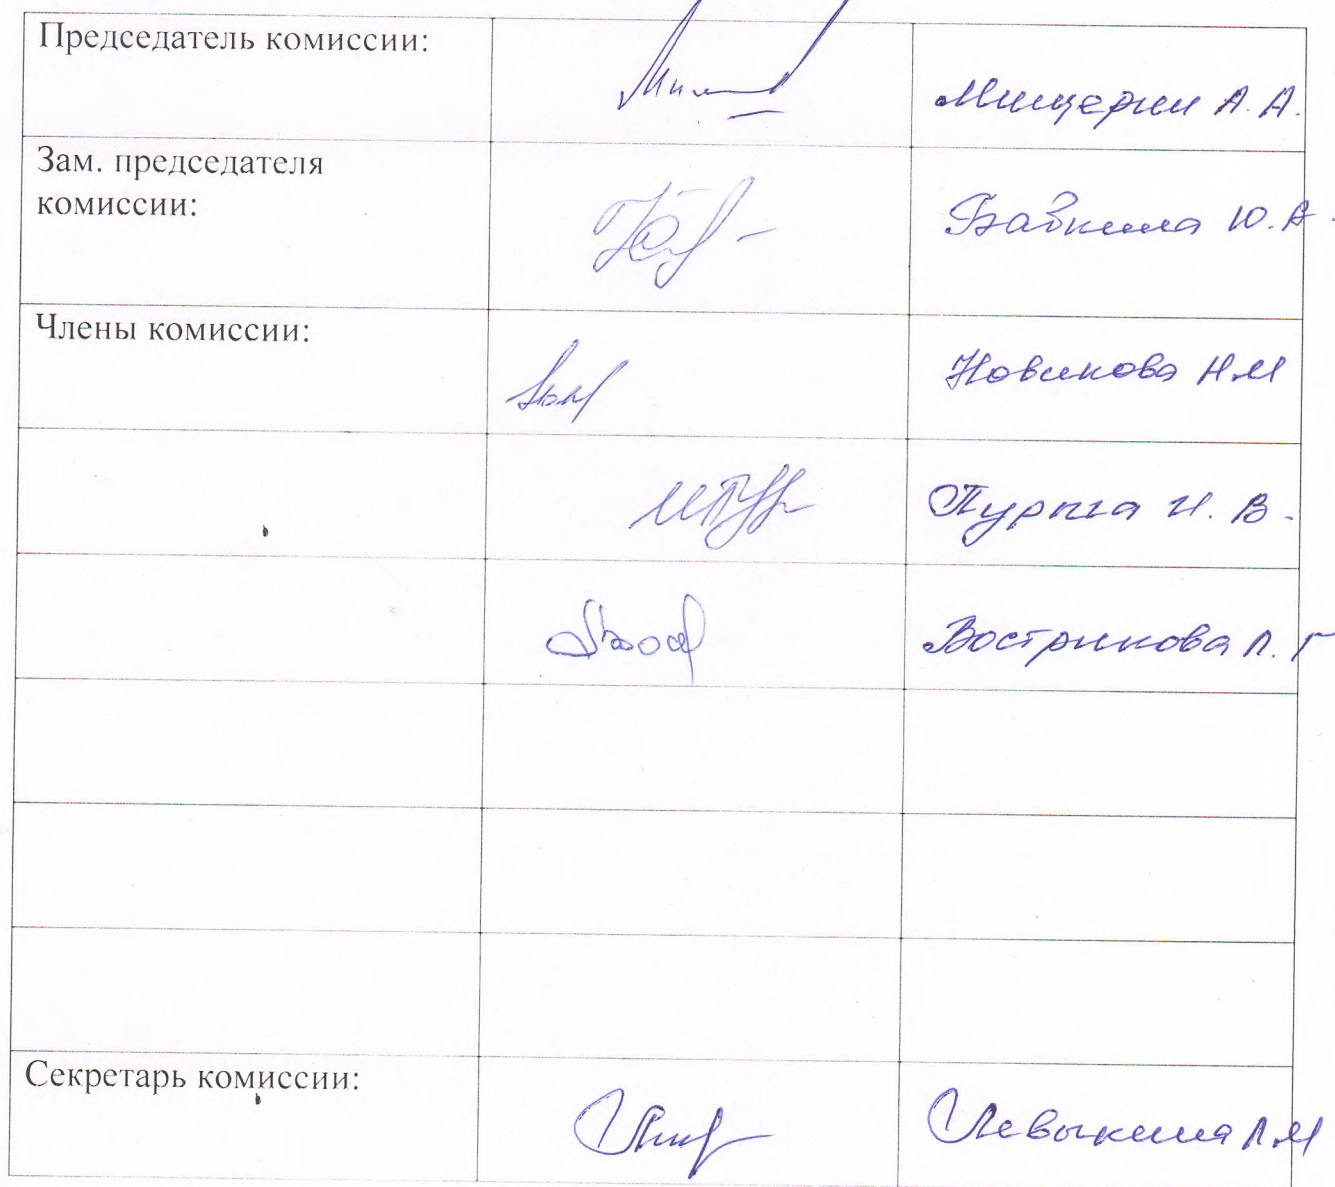 Председатель комиссии: Мищерин А. А.
Зам. председателя
комиссии: Байкина Ю. А.
Члены комиссии: Новикова Н.М
И. В.
Вострикова Л. Г
Секретарь комиссии: Левыкина Л.М